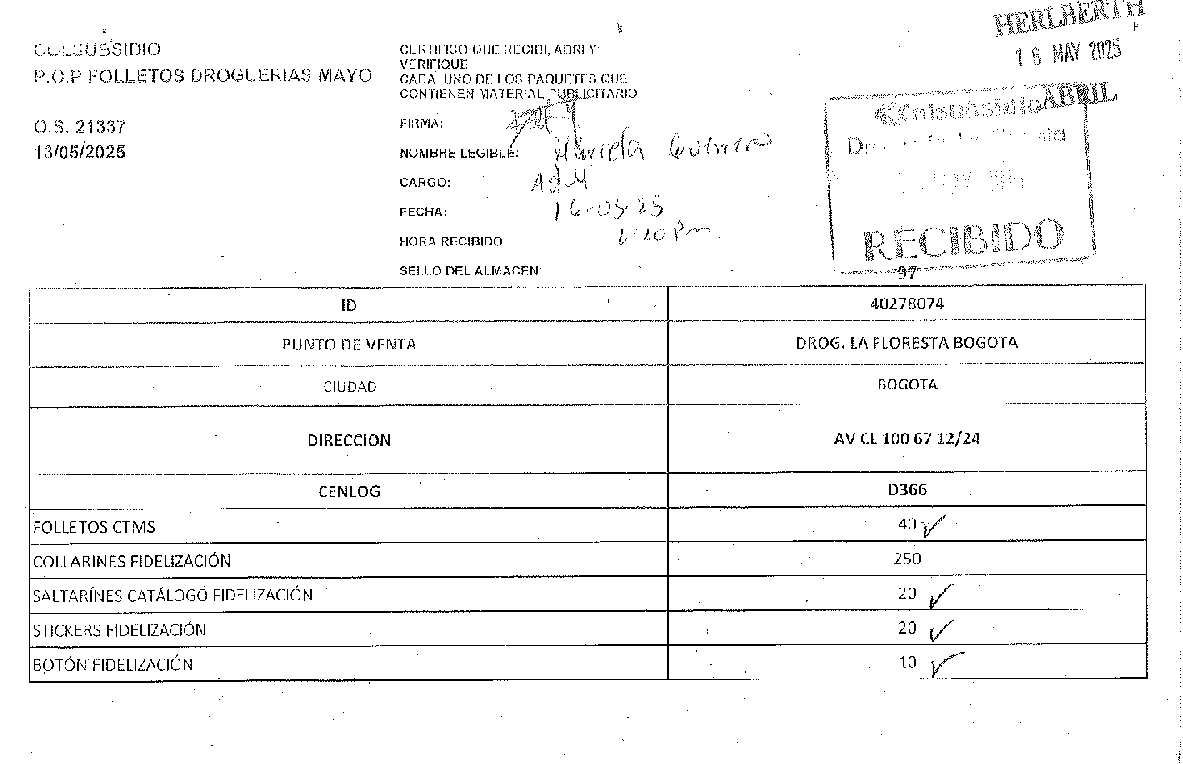 HERLBERTH
16 MAY 2025
ABRIL
COLSUSSIDIO
P.O.P FOLLETOS DROGUERIAS MAYO
O.S. 21337
13/05/2025
CERTIFICO QUE RECIBI, ABRI Y
VERIFIQUE
CADA UNO DE LOS PAQUETES QUE
CONTIENEN MATERIAL PUBLICITARIO
FIRMA:
NOMBRE LEGIBLE:
CARGO:
FECHA: 16-05-25
HORA RECIBIDO
SELLO DEL ALMACEN:
Colsubsidio
RECIBIDO
97
ID 40278074
PUNTO DE VENTA DROG. LA FLORESTA BOGOTA
CIUDAD BOGOTA
DIRECCION AV CL 100 67 12/24
CENLOG D366
FOLLETOS CTMS 40 ✓
COLLARINES FIDELIZACIÓN 250
SALTARÍNES CATÁLOGO FIDELIZACIÓN 20 ✓
STICKERS FIDELIZACIÓN 20 ✓
BOTÓN FIDELIZACIÓN 10 ✓